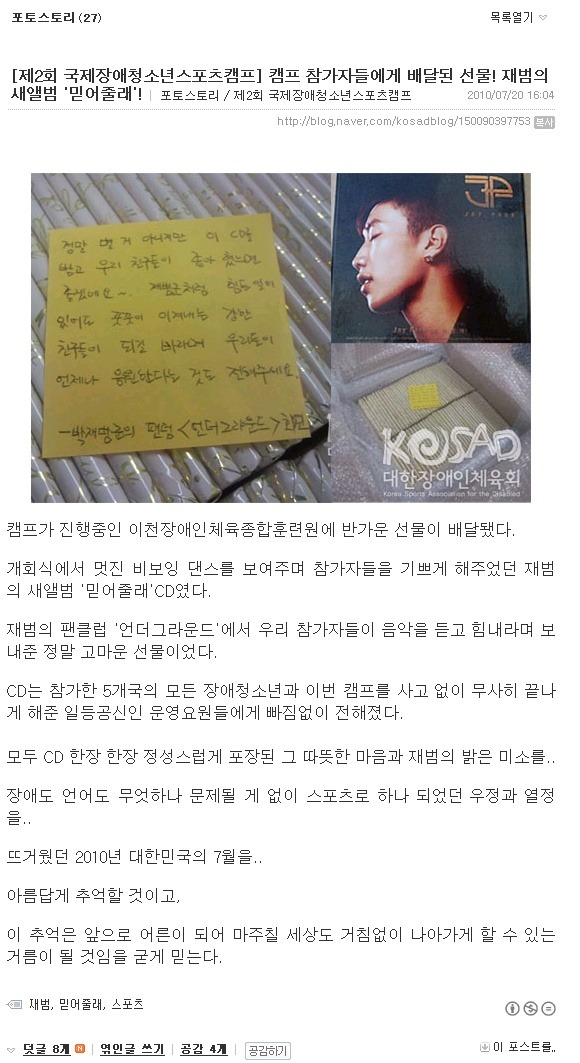 포토스토리 (27)
목록열기
[제2회 국제장애청소년스포츠캠프] 캠프 참가자들에게 배달된 선물! 재범의
새앨범 '믿어줄래'! | 포토스토리 / 제2회 국제장애청소년스포츠캠프
2010/07/20 16:04
http://blog.naver.com/kosadblog/150090397753 복사
정말 별 거 아니지만 이 CD를
받고 우리 친구들이 좋아 했으면
좋겠네요~. 재범군처럼 힘든 일이
있어도 꿋꿋이 이겨내는 강한
친구들이 되길 바라며 우리들이
언제나 응원한다는 것도 전해주세요.
팬덤 <언더그라운드>
JAY PARK
KOSAD
대한장애인체육회
Korea Sports Association for the Disabled
캠프가 진행중인 이천장애인체육종합훈련원에 반가운 선물이 배달됐다.
개회식에서 멋진 비보잉 댄스를 보여주며 참가자들을 기쁘게 해주었던 재범
의 새앨범 '믿어줄래'CD였다.
재범의 팬클럽 '언더그라운드'에서 우리 참가자들이 음악을 듣고 힘내라며 보
내준 정말 고마운 선물이었다.
CD는 참가한 5개국의 모든 장애청소년과 이번 캠프를 사고 없이 무사히 끝나
게 해준 일등공신인 운영요원들에게 빠짐없이 전해졌다.
모두 CD 한장 한장 정성스럽게 포장된 그 따뜻한 마음과 재범의 밝은 미소를..
장애도 언어도 무엇하나 문제될 게 없이 스포츠로 하나 되었던 우정과 열정
을..
뜨거웠던 2010년 대한민국의 7월을..
아름답게 추억할 것이고,
이 추억은 앞으로 어른이 되어 마주칠 세상도 거침없이 나아가게 할 수 있는
거름이 될 것임을 굳게 믿는다.
재범, 믿어줄래, 스포츠
덧글 8개 N | 엮인글 쓰기 | 공감 4개 | 공감하기
이 포스트를..